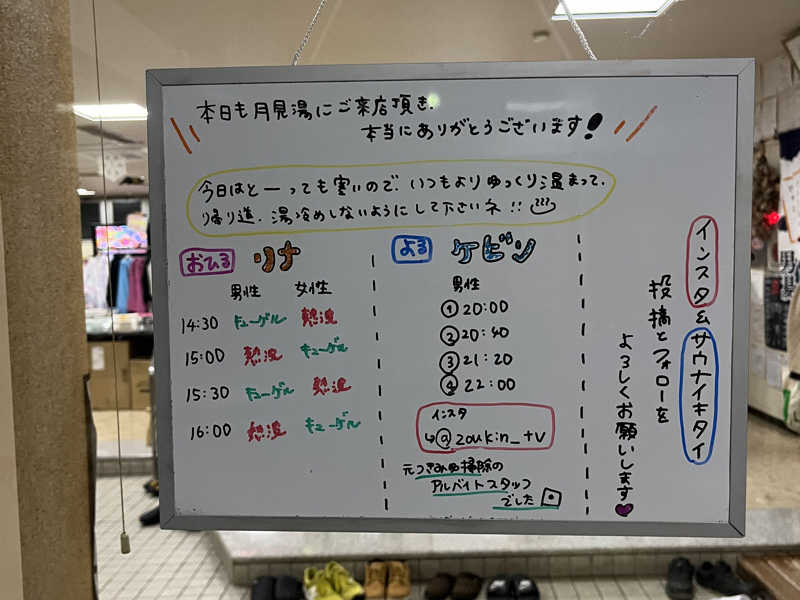 本日も月見湯にご来店頂き、
本当にありがとうございます!
今日はとーっても寒いので、いつもよりゆっくり温まって、
帰り道、湯冷めしないようにして下さいネ!!
おひる リナ
男性 女性
14:30 キューゲル 熱波
15:00 熱波 キューゲル
15:30 キューゲル 熱波
16:00 熱波 キューゲル
よる ケビン
男性
① 20:00
② 20:40
③ 21:20
④ 22:00
インスタ
↳@zoukin_tv
元つきみゆ掃除の
アルバイトスタッフ
でした
インスタ&サウナイキタイ
投稿とフォローを
よろしくお願いします